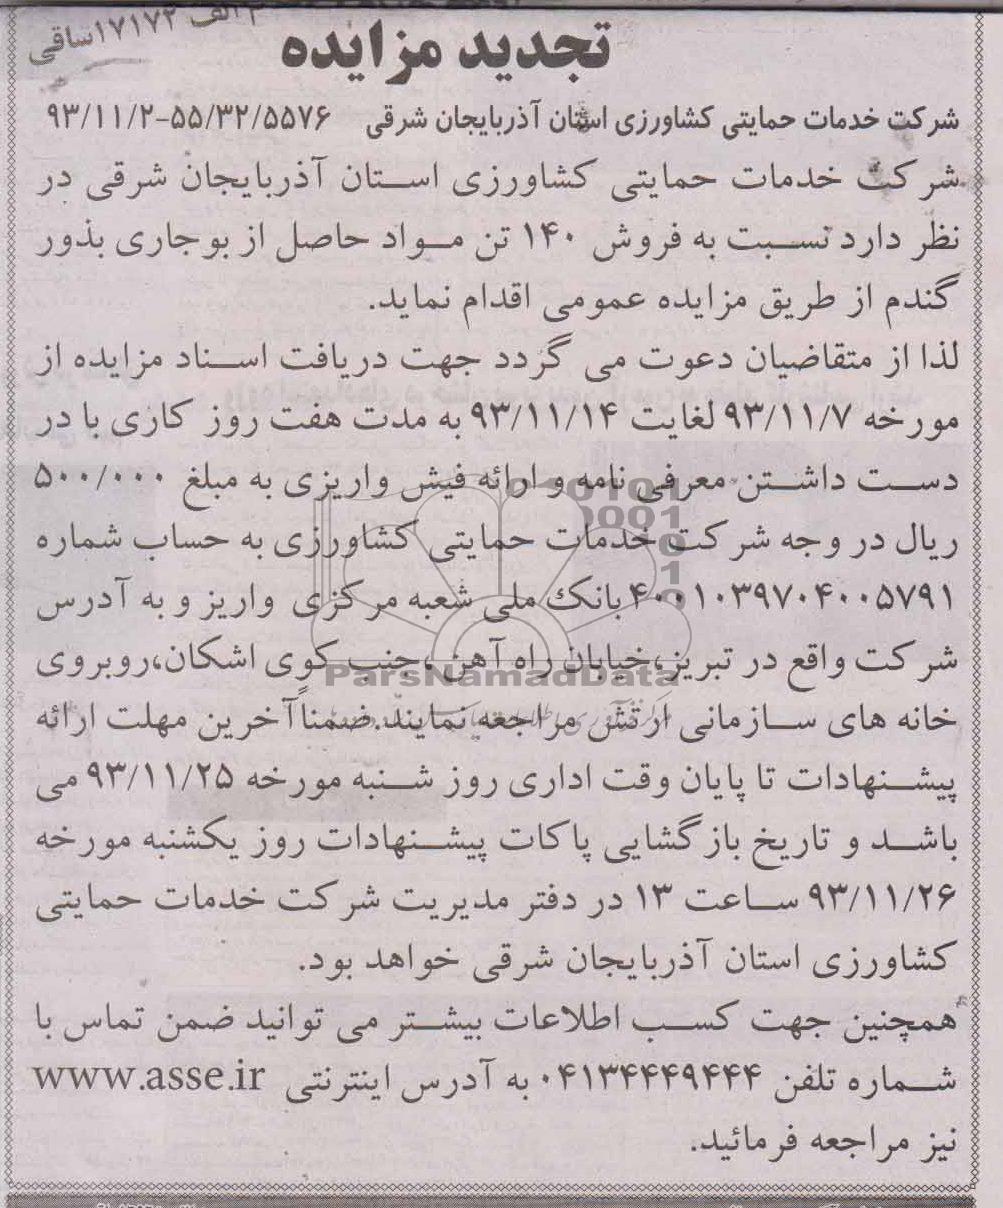 ۲ الف ۱۷۱۷۲ ساقی
تجدید مزایده
شرکت خدمات حمایتی کشاورزی استان آذربایجان شرقی ۹۳/۱۱/۲-۵۵/۳۲/۵۵۷۶
شرکت خدمات حمایتی کشاورزی استان آذربایجان شرقی در
نظر دارد نسبت به فروش ۱۴۰ تن مواد حاصل از بوجاری بذور
گندم از طریق مزایده عمومی اقدام نماید.
لذا از متقاضیان دعوت می گردد جهت دریافت اسناد مزایده از
مورخه ۹۳/۱۱/۷ لغایت ۹۳/۱۱/۱۴ به مدت هفت روز کاری با در
دست داشتن معرفی نامه و ارائه فیش واریزی به مبلغ ۵۰۰/۰۰۰
ریال در وجه شرکت خدمات حمایتی کشاورزی به حساب شماره
۴۰۰۱۰۳۹۷۰۴۰۰۵۷۹۱ بانک ملی شعبه مرکزی واریز و به آدرس
شرکت واقع در تبریز،خیابان راه آهن ،جنب کوی اشکان،روبروی
ParsNamadData
خانه های سازمانی ارتش مراجعه نمایند.ضمناً آخرین مهلت ارائه
پیشنهادات تا پایان وقت اداری روز شنبه مورخه ۹۳/۱۱/۲۵ می
باشد و تاریخ بازگشایی پاکات پیشنهادات روز یکشنبه مورخه
۹۳/۱۱/۲۶ ساعت ۱۳ در دفتر مدیریت شرکت خدمات حمایتی
کشاورزی استان آذربایجان شرقی خواهد بود.
همچنین جهت کسب اطلاعات بیشتر می توانید ضمن تماس با
شماره تلفن ۰۴۱۳۴۴۴۹۴۴۴ به آدرس اینترنتی www.asse.ir
نیز مراجعه فرمائید.